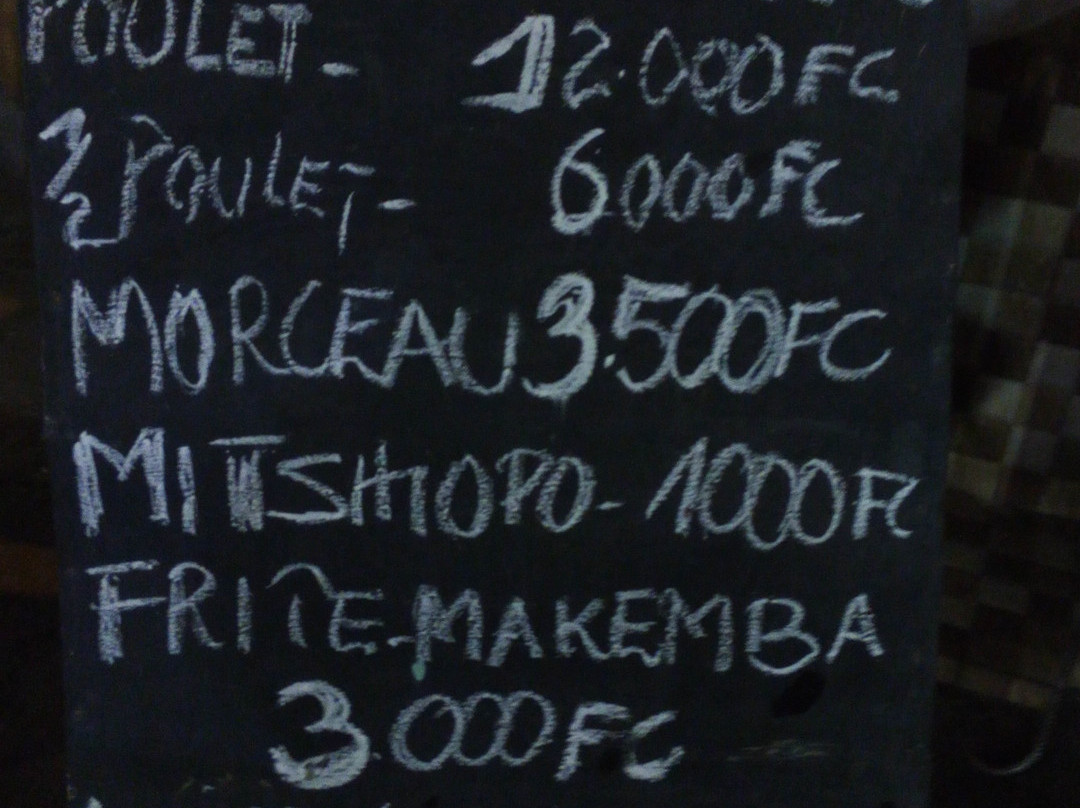 POULET - 12.000 FC
1/2 POULET - 6000 FC
MORCEAU 3.500 FC
MITSHOPO - 1000 FC
FRITE - MAKEMBA
3.000 FC